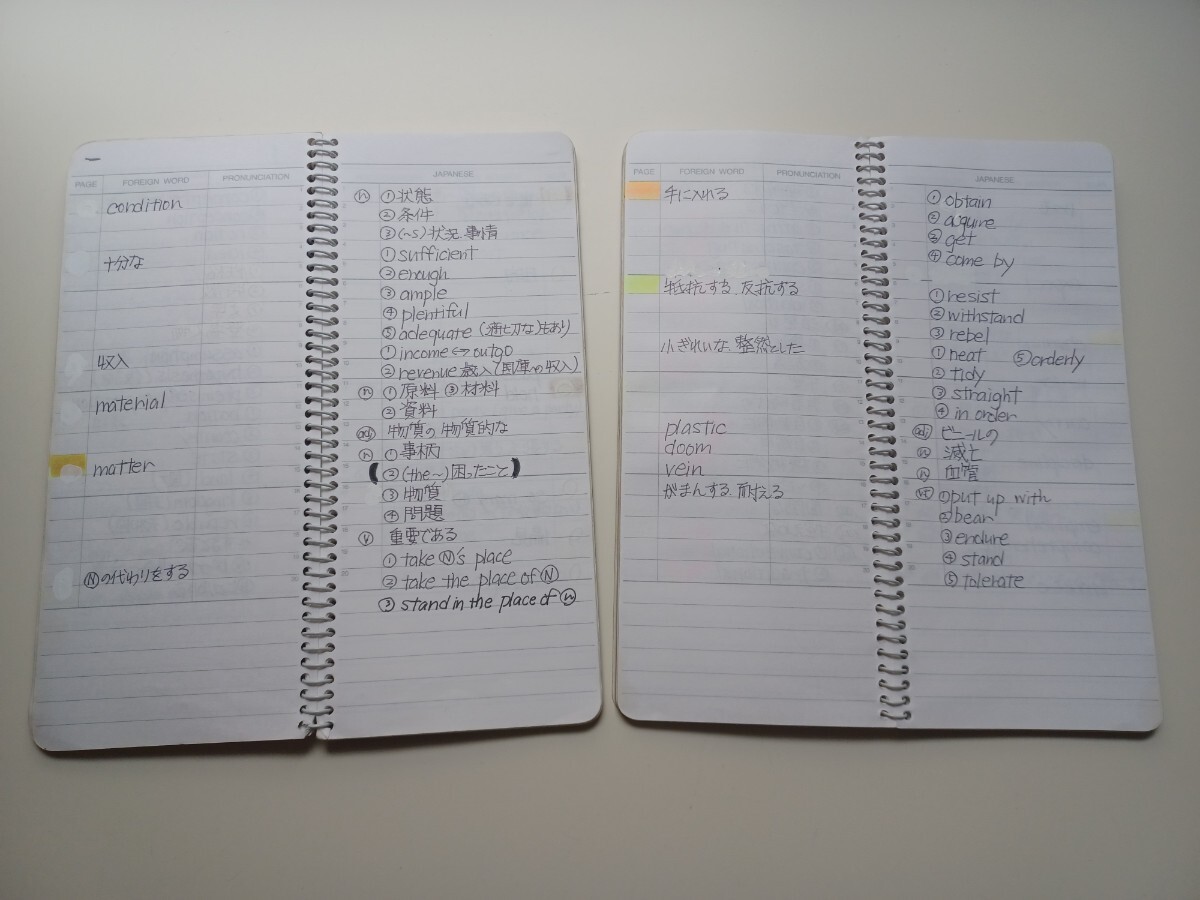 PAGE FOREIGN WORD PRONUNCIATION JAPANESE
condition ⓝ ①状態
②条件
③(~s)状況 事情
十分な ①sufficient
②enough
③ample
④plentiful
⑤adequate (適切な)もあり
収入 ①income⇔outgo
②revenue 歳入(国庫の収入)
material ⓝ ①原料 ③材料
②資料
adj 物質の 物質的な
matter ⓝ ①事柄
(②(the~)困ったこと)
③物質
④問題
ⓥ 重要である
Ⓝの代わりをする ①take Ⓝ's place
②take the place of Ⓝ
③stand in the place of ⓝ
PAGE FOREIGN WORD PRONUNCIATION JAPANESE
手に入れる ①obtain
②aquire
③get
④come by
抵抗する.反抗する ①resist
②withstand
③rebel
小ぎれいな 整然とした ①neat ⑤orderly
②tidy
③straight
④in order
plastic adj ビニールの
doom ⓝ 滅亡
vein ⓝ 血管
がまんする.耐える vt ①put up with
②bear
③endure
④stand
⑤tolerate